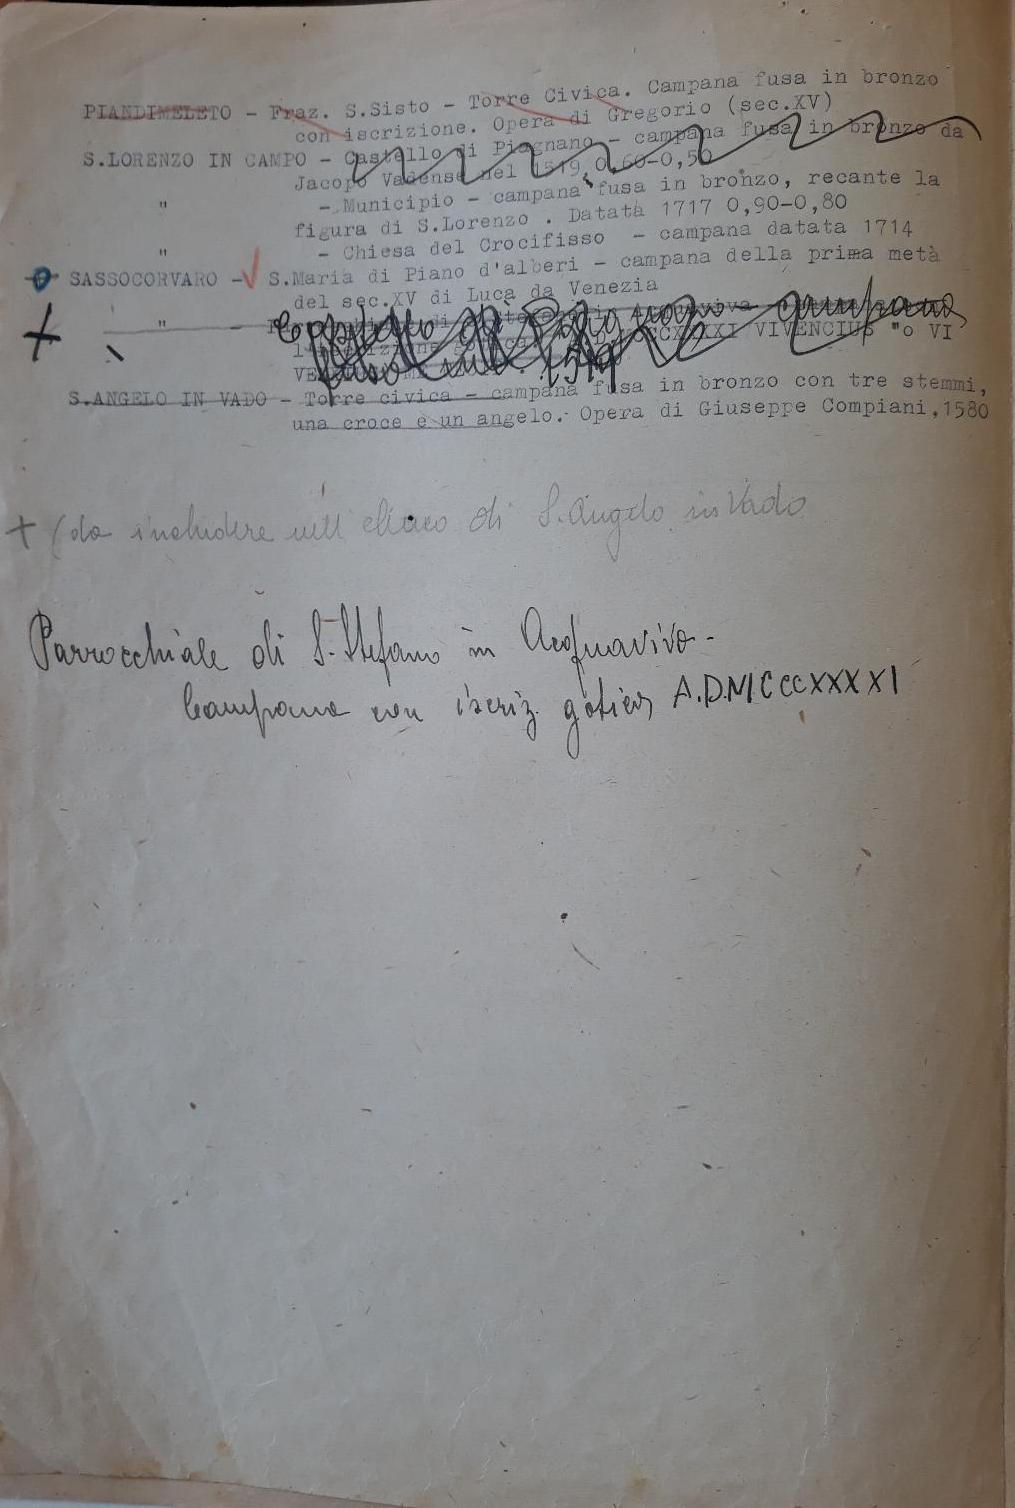 PIANDIMELETO - Fraz. S.Sisto - Torre Civica. Campana fusa in bronzo
con iscrizione. Opera di Gregorio (sec.XV)
S.LORENZO IN CAMPO - Castello di Piagnano - campana fusa in bronzo da
Jacopo Vadense nel 1519, 0,60-0,50
" - Municipio - campana fusa in bronzo, recante la
figura di S.Lorenzo . Datata 1717 0,90-0,80
" - Chiesa del Crocifisso - campana datata 1714
SASSOCORVARO - S.Maria di Piano d'alberi - campana della prima metà
del sec.XV di Luca da Venezia
" - campana
VIVENCIUS "o VI
1519
S.ANGELO IN VADO - Torre civica - campana fusa in bronzo con tre stemmi,
una croce e un angelo.- Opera di Giuseppe Compiani,1580
+ (da includere nell'elenco di S.Angelo in Vado
Parrocchiale di S.Stefano in Acquaviva-
Campana con iscriz. gotica A.D.MCCCCXXXXI